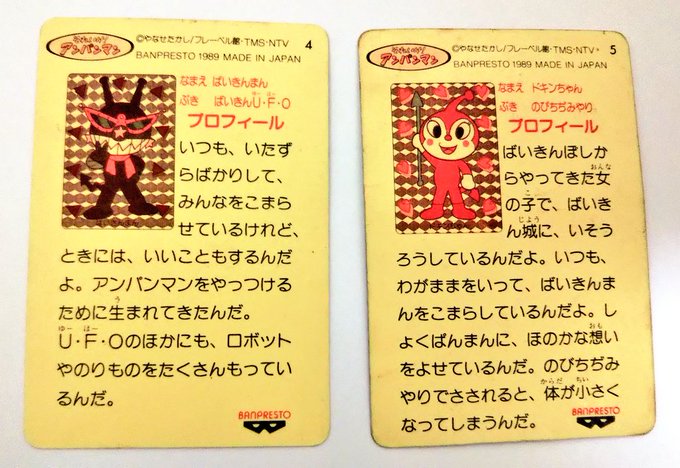 それいけ!
アンパンマン
©やなせたかし/フレーベル館・TMS・NTV 4
BANPRESTO 1989 MADE IN JAPAN
なまえ ばいきんまん
ぶき ばいきんU・F・O
ゆーほー
プロフィール
いつも、いたず
らばかりして、
みんなをこまら
せているけれど、
ときには、いいこともするんだ
よ。アンパンマンをやっつける
ために生まれてきたんだ。
う
U・F・Oのほかにも、ロボット
ゆーほー
やのりものをたくさんもってい
るんだ。
ばいきんまん
BANPRESTO
それいけ!
アンパンマン
©やなせたかし/フレーベル館・TMS・NTV・ 5
BANPRESTO 1989 MADE IN JAPAN
なまえ ドキンちゃん
ぶき のびちぢみやり
プロフィール
ばいきんぼしか
らやってきた女
おんな
の子で、ばいき
こ
ん城に、いそう
じょう
ろうしているんだよ。いつも、
わがままをいって、ばいきんま
んをこまらしているんだよ。し
ょくぱんまんに、ほのかな想い
おも
をよせているんだ。のびちぢみ
やりでさされると、体が小さく
からだ ちい
なってしまうんだ。
BANPRESTO